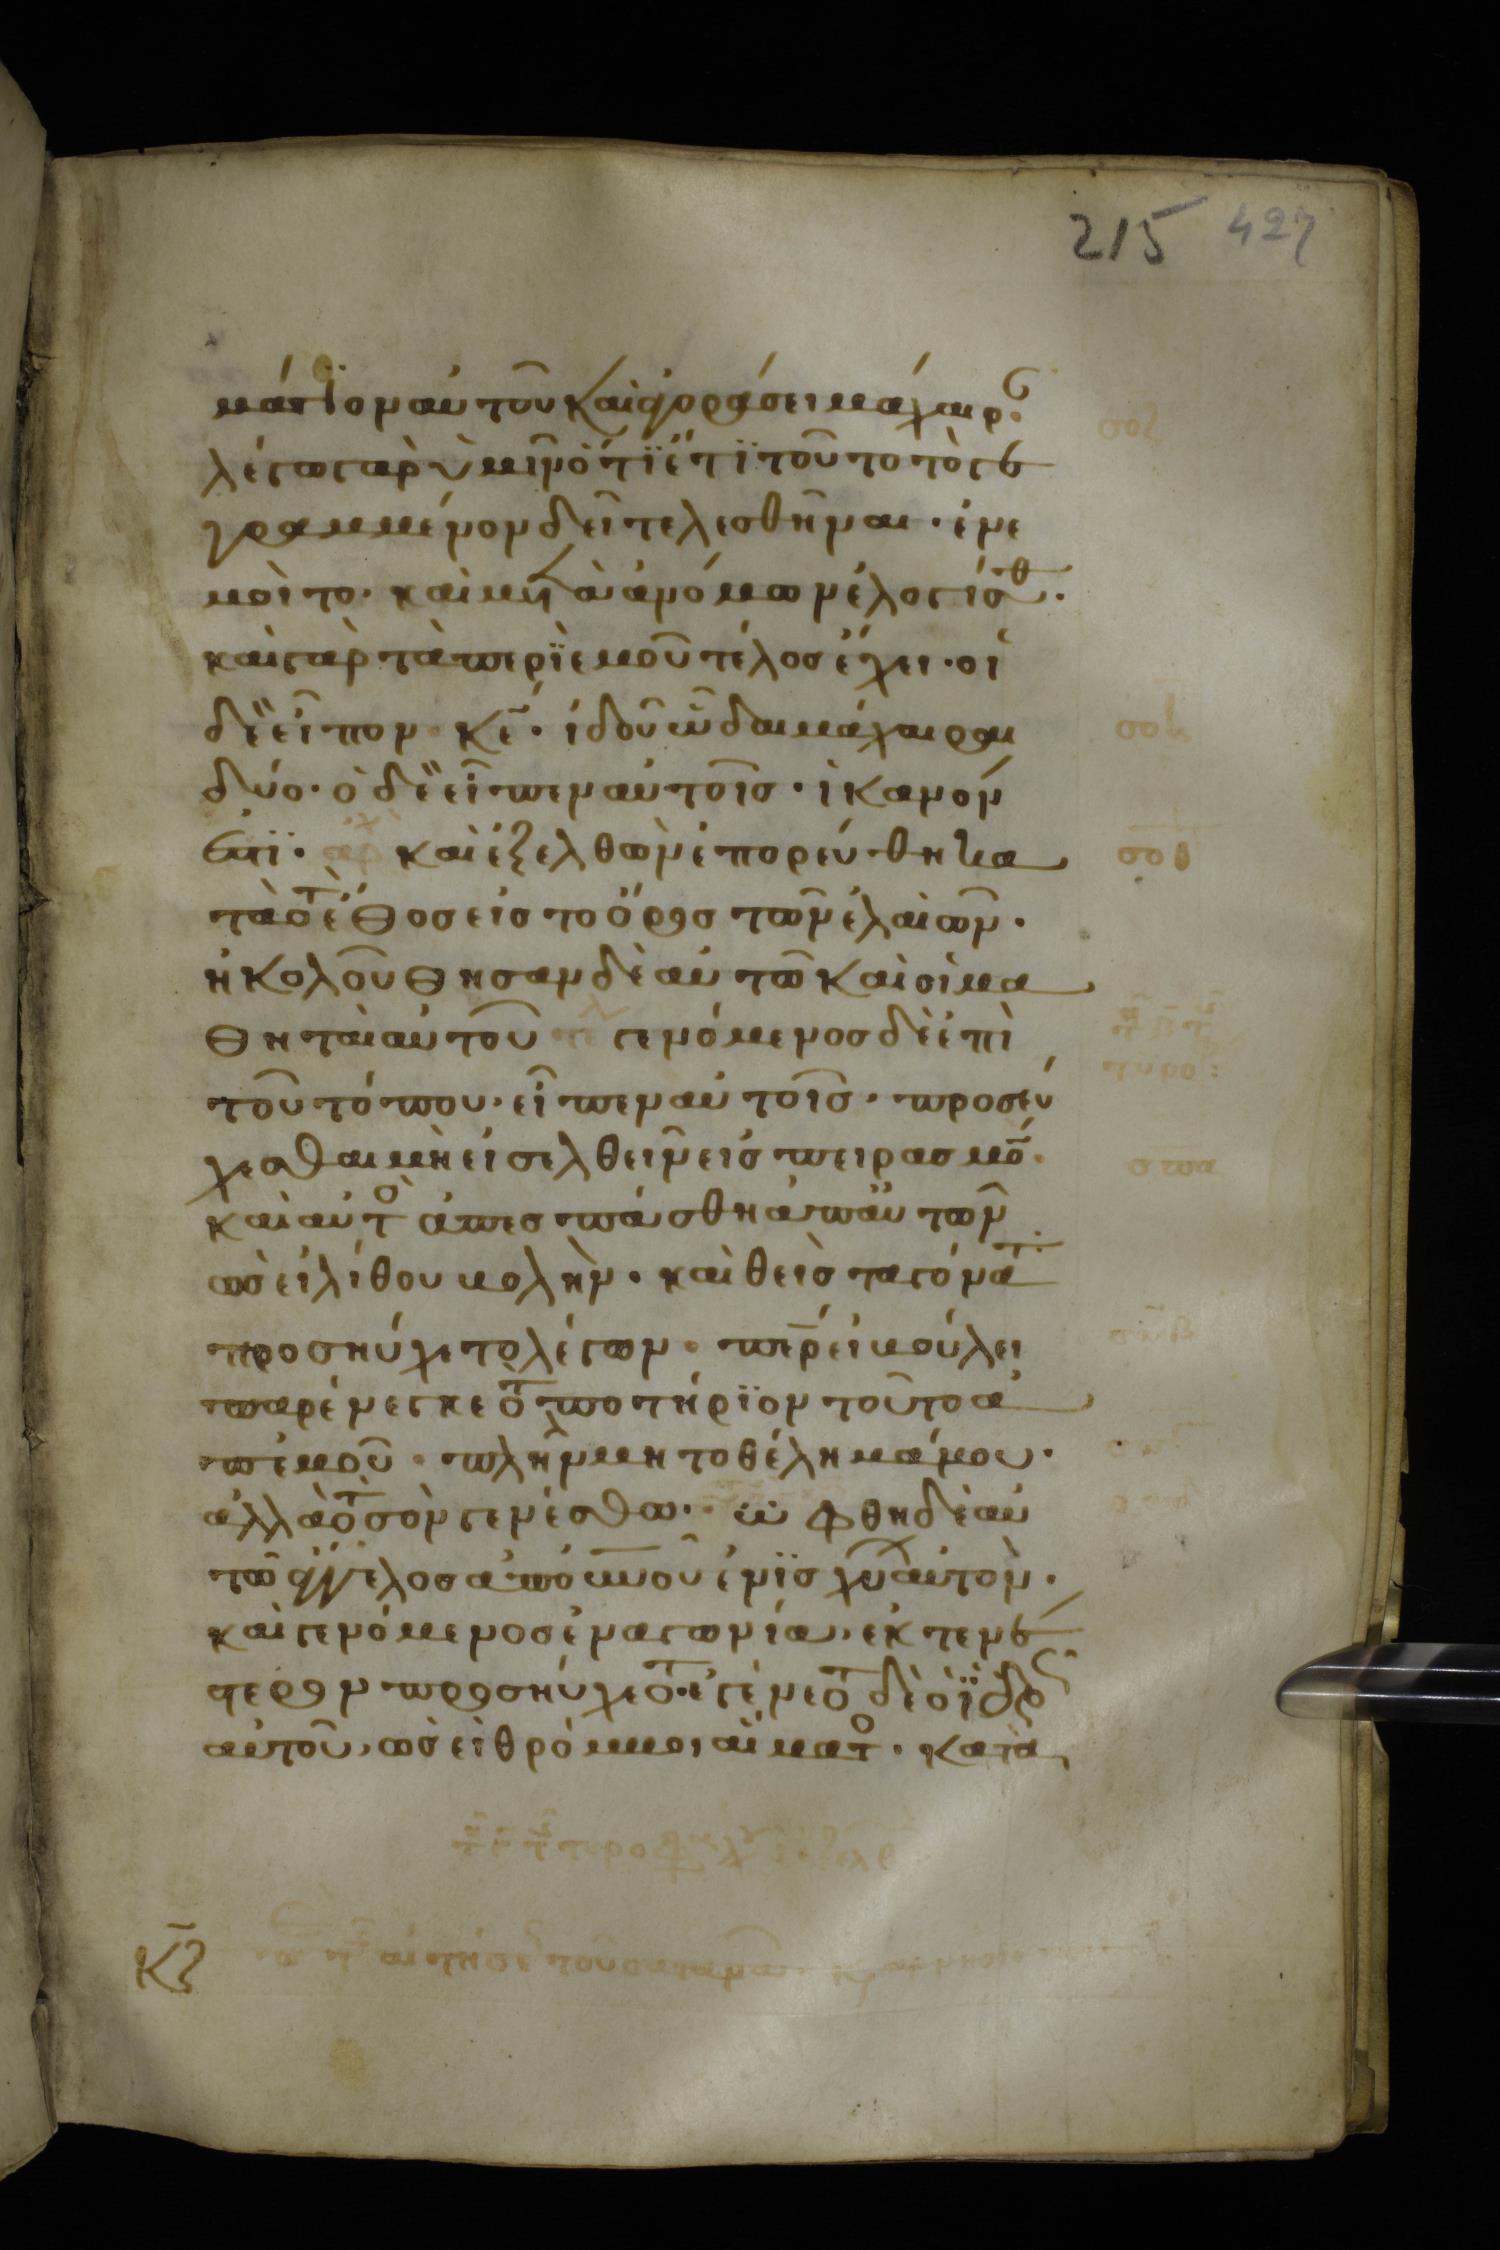 215 427
μάτϊον αὐτοῦ καὶ ἀγοράσει μάχαιρ
λέγω γὰρ ὑμῖν ὅτϊ ἔτϊ τοῦτο τὸ γε
γραμμένον δεῖ τελεσθῆναι · ἐν ε
μοὶ το · καὶ μετὰ ἀνόμων ἐλογίσθ ·
καὶ γὰρ τὰ περὶ ἐμοῦ τέλος ἔχει · οἱ
δὲ εἶπον · κε · ἰδοῦ ὧδαι μάχαιραι
δύο · ὁ δὲ εἶπεν αὐτοῖς · ἱκανόν
ἐστϊ · ἀρχ καὶ ἐξελθὼν ἐπορεύθη κα
τὰ τὸ ἔθος εἰς το ὄρος τῶν ἐλαιῶν ·
ἠκολοῦθησαν δὲ αὐτῶ καὶ οἱ μα
θηταὶ αὐτοῦ τελ γενόμενος δὲ ἐπὶ
τοῦ τόπου · εἶπεν αὐτοῖς · προσεύ
χεσθαι μὴ εἰσελθεῖν εἰς πειρασμό ·
καὶ αὐτο ἀπεσπάσθη ἀπ αὐτῶν
ὡσεὶ λίθου βολὴν · καὶ θεὶς τα γόνατ
προσηύχετο λέγων · περ εἰ βούλει
παρένεγκε τὸ ποτήρϊον τοῦτο ἀ
π ἐμοῦ · πλὴν μη το θέλημά μου ·
ἀλλὰ τὸ σὸν γενέσθω · ὤφθη δὲ αὐ
τῶ ἄγγελος ἀπὸ ουνοῦ ἐνϊσχῦ αὐτὸν ·
καὶ γενόμενος ἐν ἀγωνία, ἐκτενέσ
τερον προσηύχετο · ἐγένετο δὲ ὁ ϊδρ
αὐτοῦ, ὡσεὶ θρόμβοι αἵματο · κατα
κζ